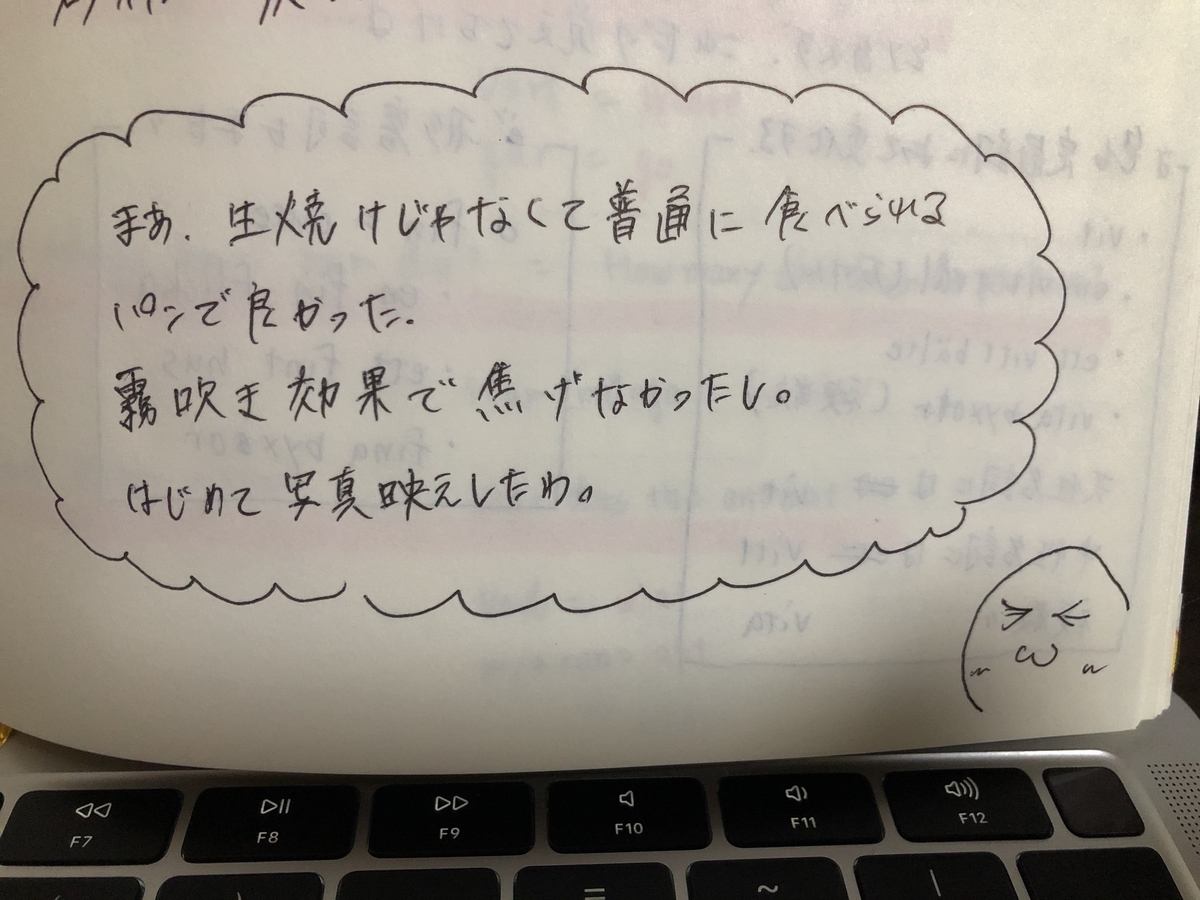 まあ、生焼けじゃなくて普通に食べられる
パンで良かった.
霧吹き効果で焦げなかったし。
はじめて写真映えしたわ。
F7
F8
F9
F10
F11
F12
=
~